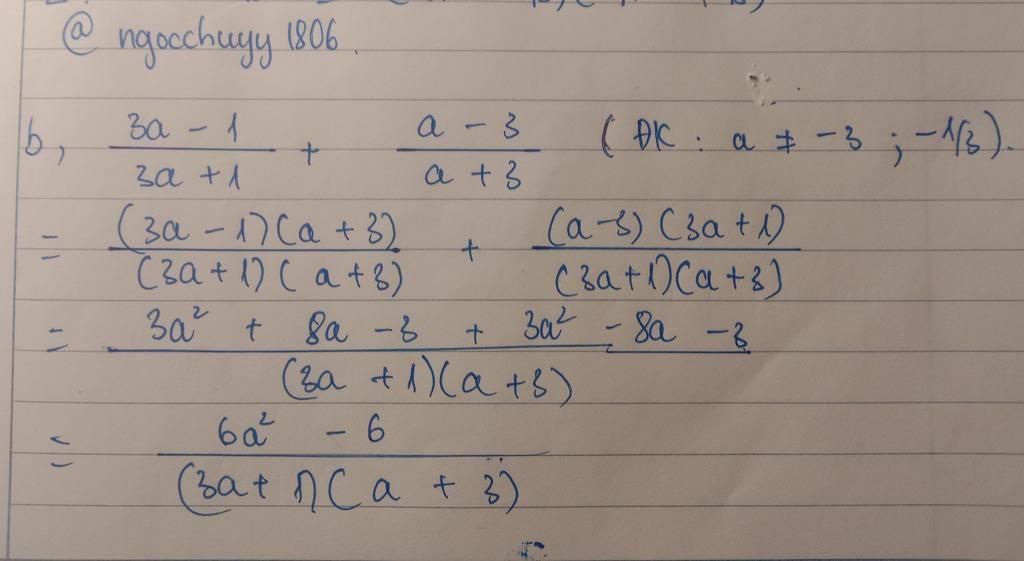 @ ngocchuyy 1806.
b, (3a - 1)/(3a + 1) + (a - 3)/(a + 3) (ĐK : a ≠ -3 ; -1/3).
= ((3a - 1)(a + 3))/((3a + 1)(a + 3)) + ((a - 3)(3a + 1))/((3a + 1)(a + 3))
= (3a² + 8a - 3 + 3a² - 8a - 3)/((3a + 1)(a + 3))
= (6a² - 6)/((3a + 1)(a + 3))